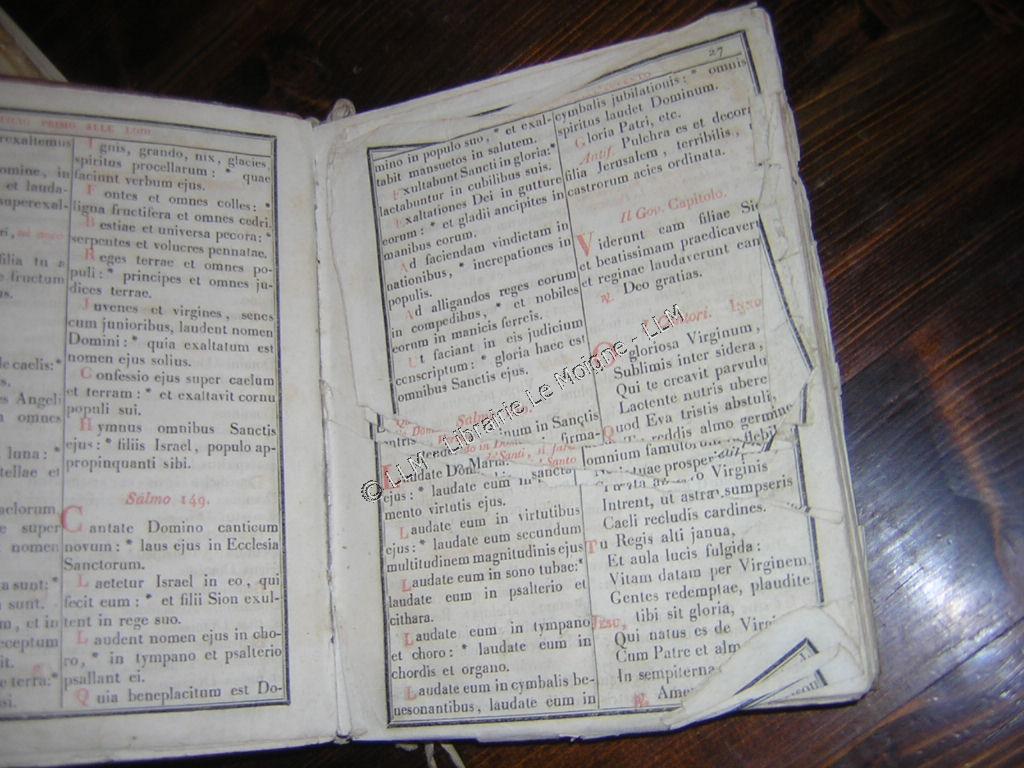 PRIMO ALLE LODI
rexaltemus
omine, in
et lauda-
superexal-
filia tu a
fructum
de caelis:*
Angeli
omnes
luna: *
tellae et
aelorum
super
nomen
a sunt:*
sunt.
m, et in
ceceptum
it.
e terra:*
si.
Ignis, grando, nix, glacies
spiritus procellarum: * quae
faciunt verbum ejus.
Fontes et omnes colles: *
ligna fructifera et omnes cedri.
Bestiae et universa pecora: *
serpentes et volucres pennatae.
Reges terrae et omnes po-
puli: * principes et omnes ju-
dices terrae.
Juvenes et virgines, senes
cum junioribus, laudent nomen
Domini: * quia exaltatum est
nomen ejus solius.
Confessio ejus super caelum
et terram: * et exaltavit cornu
populi sui.
Hymnus omnibus Sanctis
ejus: * filiis Israel, populo ap-
propinquanti sibi.
Salmo 149.
Cantate Domino canticum
novum: * laus ejus in Ecclesia
Sanctorum.
Laetetur Israel in eo, qui
fecit eum: * et filii Sion exul-
tent in rege suo.
Laudent nomen ejus in cho-
ro, * in tympano et psalterio
psallant ei.
Quia beneplacitum est Do-
27
mino in populo suo, * et exal-
tabit mansuetos in salutem.
Exultabunt Sancti in gloria:*
laetabuntur in cubilibus suis.
Exaltationes Dei in gutture
eorum: * et gladii ancipites in
manibus eorum.
Ad faciendam vindictam in
nationibus, * increpationes in
populis.
Ad alligandos reges eorum
in compedibus, * et nobiles
eorum in manicis ferreis.
Ut faciant in eis judicium
conscriptum: * gloria haec est
omnibus Sanctis ejus.
Salmo
num in Sanctis
firma-
Laudate
ejus: * laudate eum
mento virtutis ejus.
Laudate eum in virtutibus
ejus: * laudate eum secundum
multitudinem magnitudinis ejus
Laudate eum in sono tubae:*
laudate eum in psalterio et
cithara.
Laudate eum in tympano
et choro: * laudate eum in
chordis et organo.
Laudate eum in cymbalis be-
nesonantibus, laudate eum in
cymbalis jubilationis: * omnis
spiritus laudet Dominum.
Gloria Patri, etc.
Antif. Pulchra es et decora
filia Jerusalem, terribilis,
castrorum acies ordinata.
Il Gov. Capitolo.
Viderunt eam filiae Sio
et beatissimam praedicaverunt
et reginae laudaverunt eam
R. Deo gratias.
Inno
O gloriosa Virginum,
Sublimis inter sidera,
Qui te creavit parvulum
Lactente nutris ubere
Quod Eva tristis abstulit,
reddis almo germine
Intrent, ut astra sumpseris
Caeli recludis cardines.
Tu Regis alti janua,
Et aula lucis fulgida:
Vitam datam per Virginem
Gentes redemptae, plaudite.
Jesu, tibi sit gloria,
Qui natus es de Virgi
Cum Patre et alm
In sempiterna
R. Amen
© LLM - Librairie Le Moigne - LLM